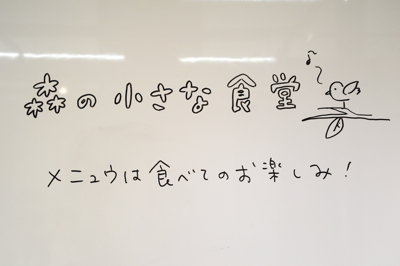 森の小さな食堂
メニュウは食べてのお楽しみ!